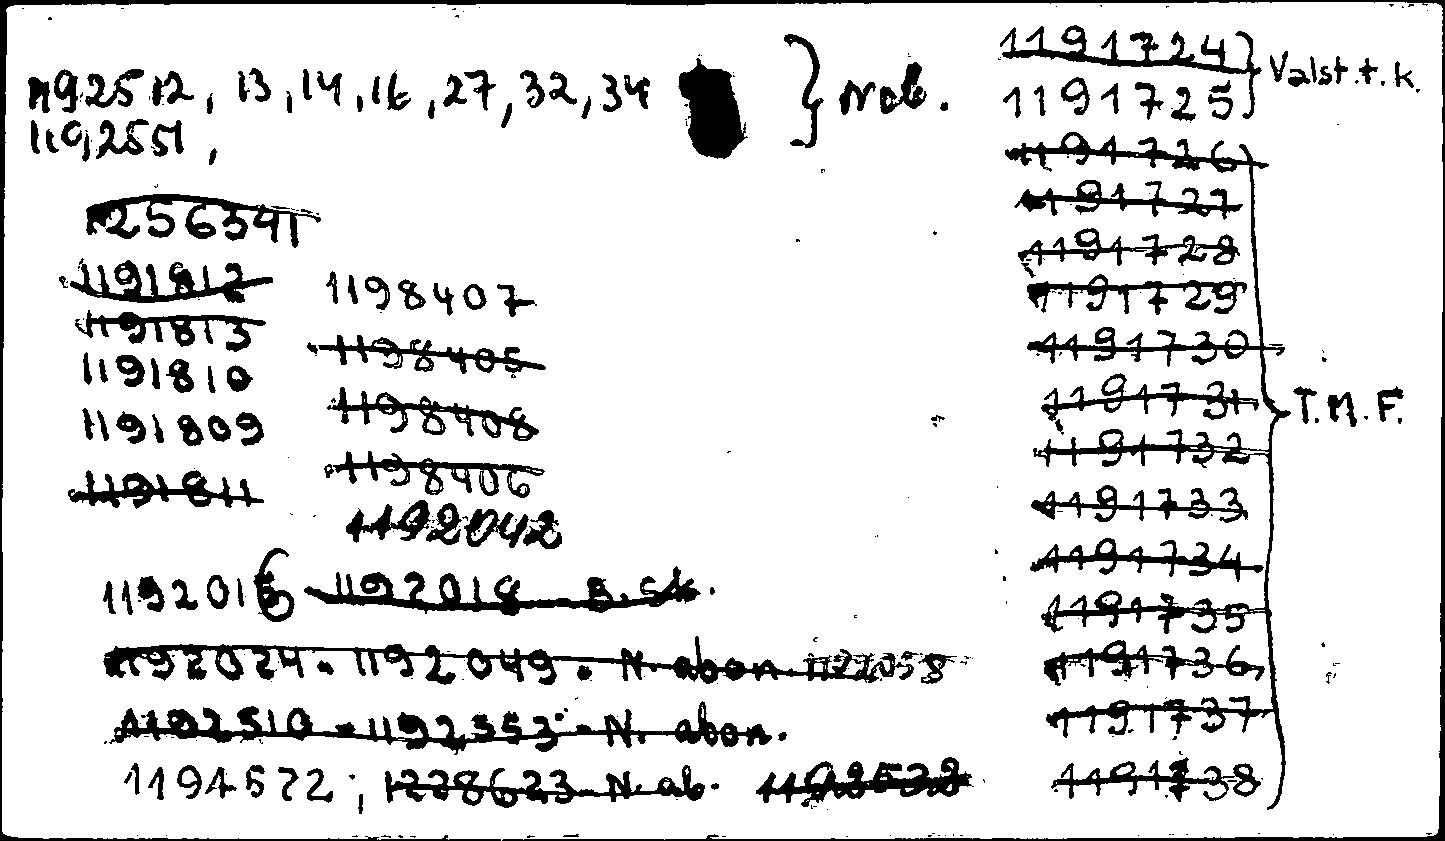 1192512, 13, 14, 16, 27, 32, 34
1192551,
Nab.
1256341
1191812
1191813
1191810
1191809
1191811
1198407
1198405
1198408
1198406
1192042
1192016 1192018 - B. sk.
1192024 - 1192049 - N. abon.
1192510 - 1192553 - N. abon.
1191572; 1228623 - N. ab. 1192532
1191724
1191725
Valst. t. k.
1191726
1191727
1191728
1191729
1191730
1191731
1191732
1191733
1191734
1191735
1191736
1191737
1191738
T.M.F.